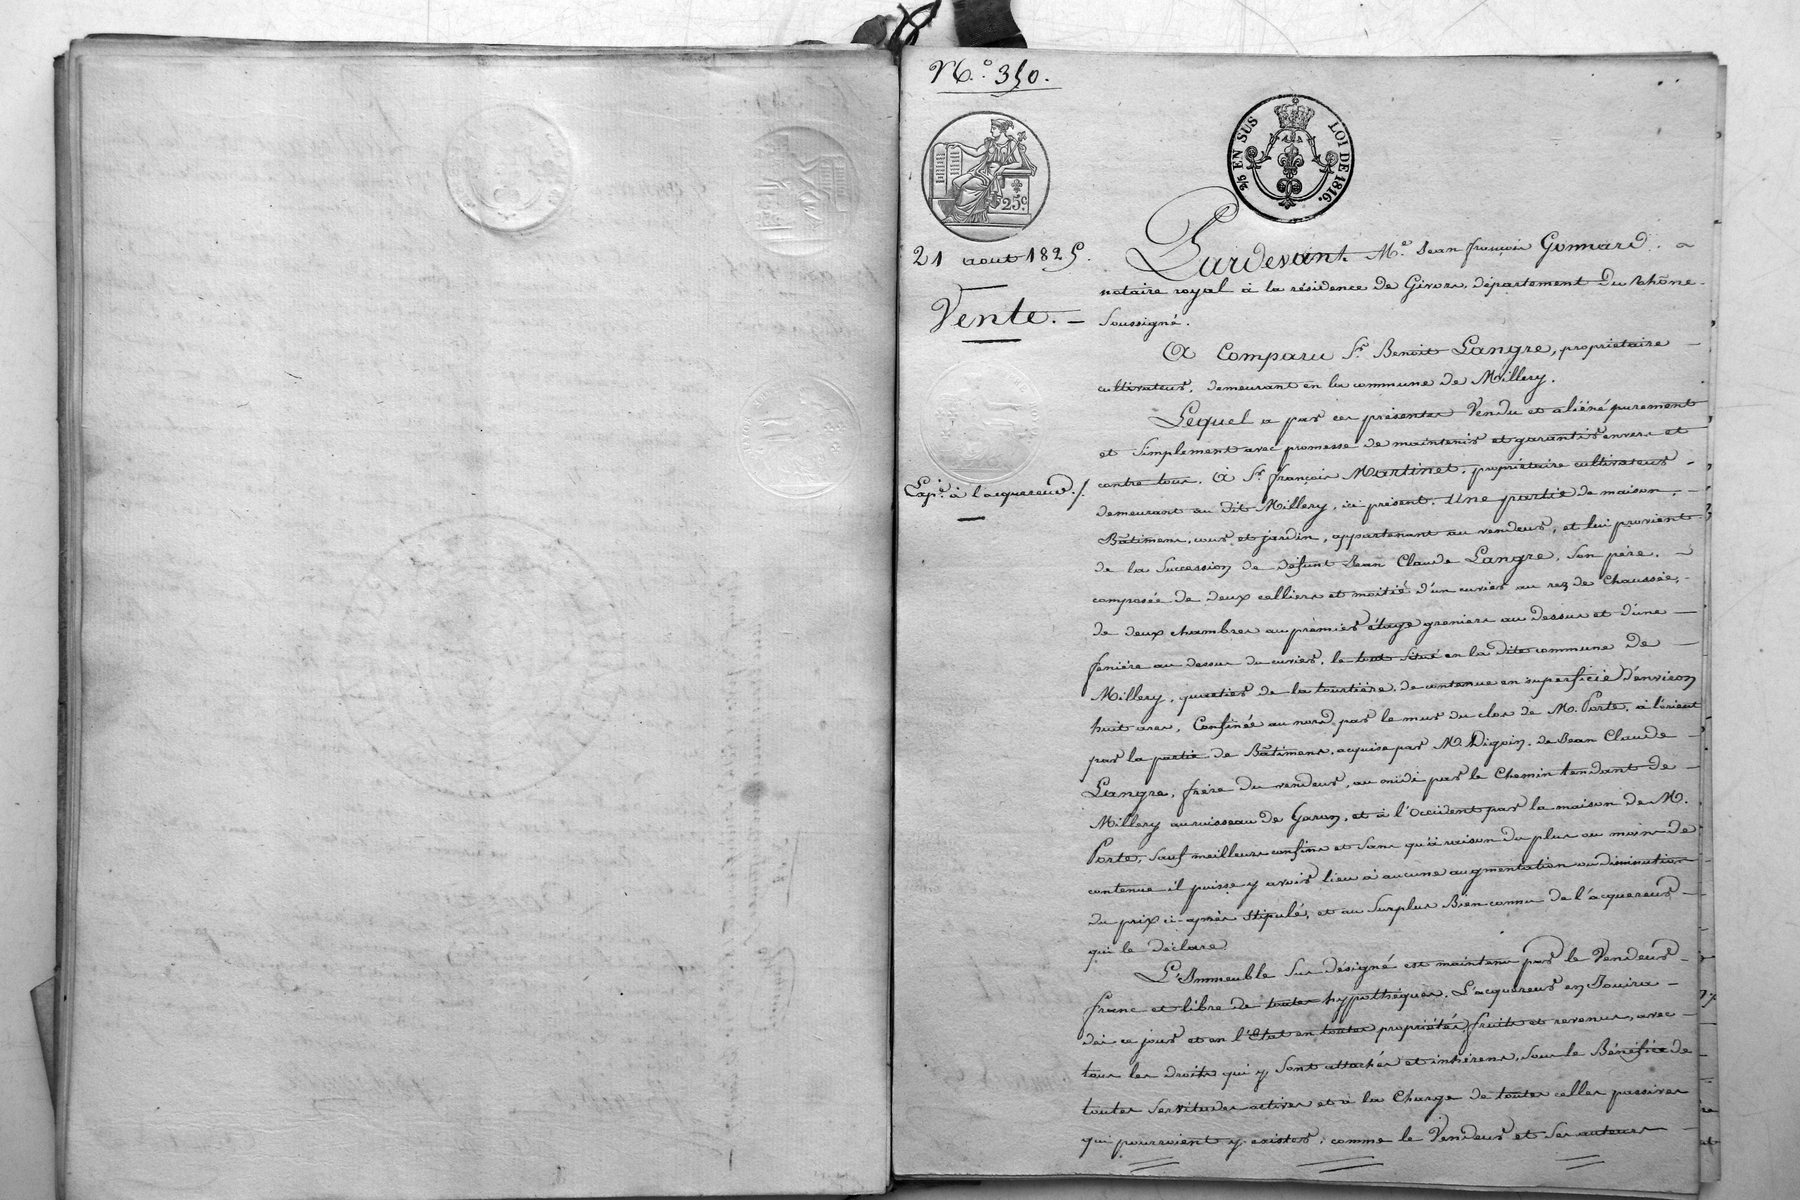 N.° 350.
25 c.
¼ EN SUS LOI DE 1816.
21 aout 1825.
Vente. —
Exp.on à l'acquereur ./.
Pardevant M.e Jean françois Gonnard
notaire royal à la résidence de Givors, département du Rhône
Soussigné.
A Comparu S.r Benoit Langre, propriétaire
cultivateur, demeurant en la commune de Millery.
Lequel a par ces présentes Vendu et aliéné purement
et simplement avec promesse de maintenir et garantir envers et
contre tous. A S.r françois Martinet, propriétaire cultivateur
demeurant au dit Millery, ici présent. Une partie de maison,
Bâtimens, cour et jardin, appartenant au vendeur, et lui provient
de la Succession de défunt Jean Claude Langre, son père,
composée de deux celliers et moitié d'un cuvier au rez de Chaussée,
de deux chambres au prémier étage greniers au dessus et d'une
feniére au dessus du cuvier, le tout situé en la dite commune de
Millery, quartier de la tourtière, de contenue en superficie d'environ
huit ares, Confinée au nord par le mur du clos de M. Porte, à l'orient
par la partie de Bâtimens, acquise par M. Digoin, de Jean Claude
Langre, frère du vendeur, au midi par le Chemin tendant de
Millery au ruisseau de Garon, et à l'Occident par la maison de M.
Porte, Sauf meilleurs confins et sans qu'à raison du plus ou moins de
contenue il puisse y avoir lieu à aucune augmentation ou diminution
du prix ci-après Stipulé, et au Surplus Bien connu de l'acquereur,
qui le déclare.
L'Immeuble Sus désigné est maintenu par le Vendeur
franc et libre de toutes hypothéques. L'acquereur en Jouira
dès ce jour et en l'état en toutes propriétés, fruits et revenus, avec
tous les droits qui y sont attachés et inhérens, sous le Bénéfice de
toutes servitudes actives et à la Charge de toutes celles passives
qui pourroient y exister, comme le Vendeur et Ses auteurs